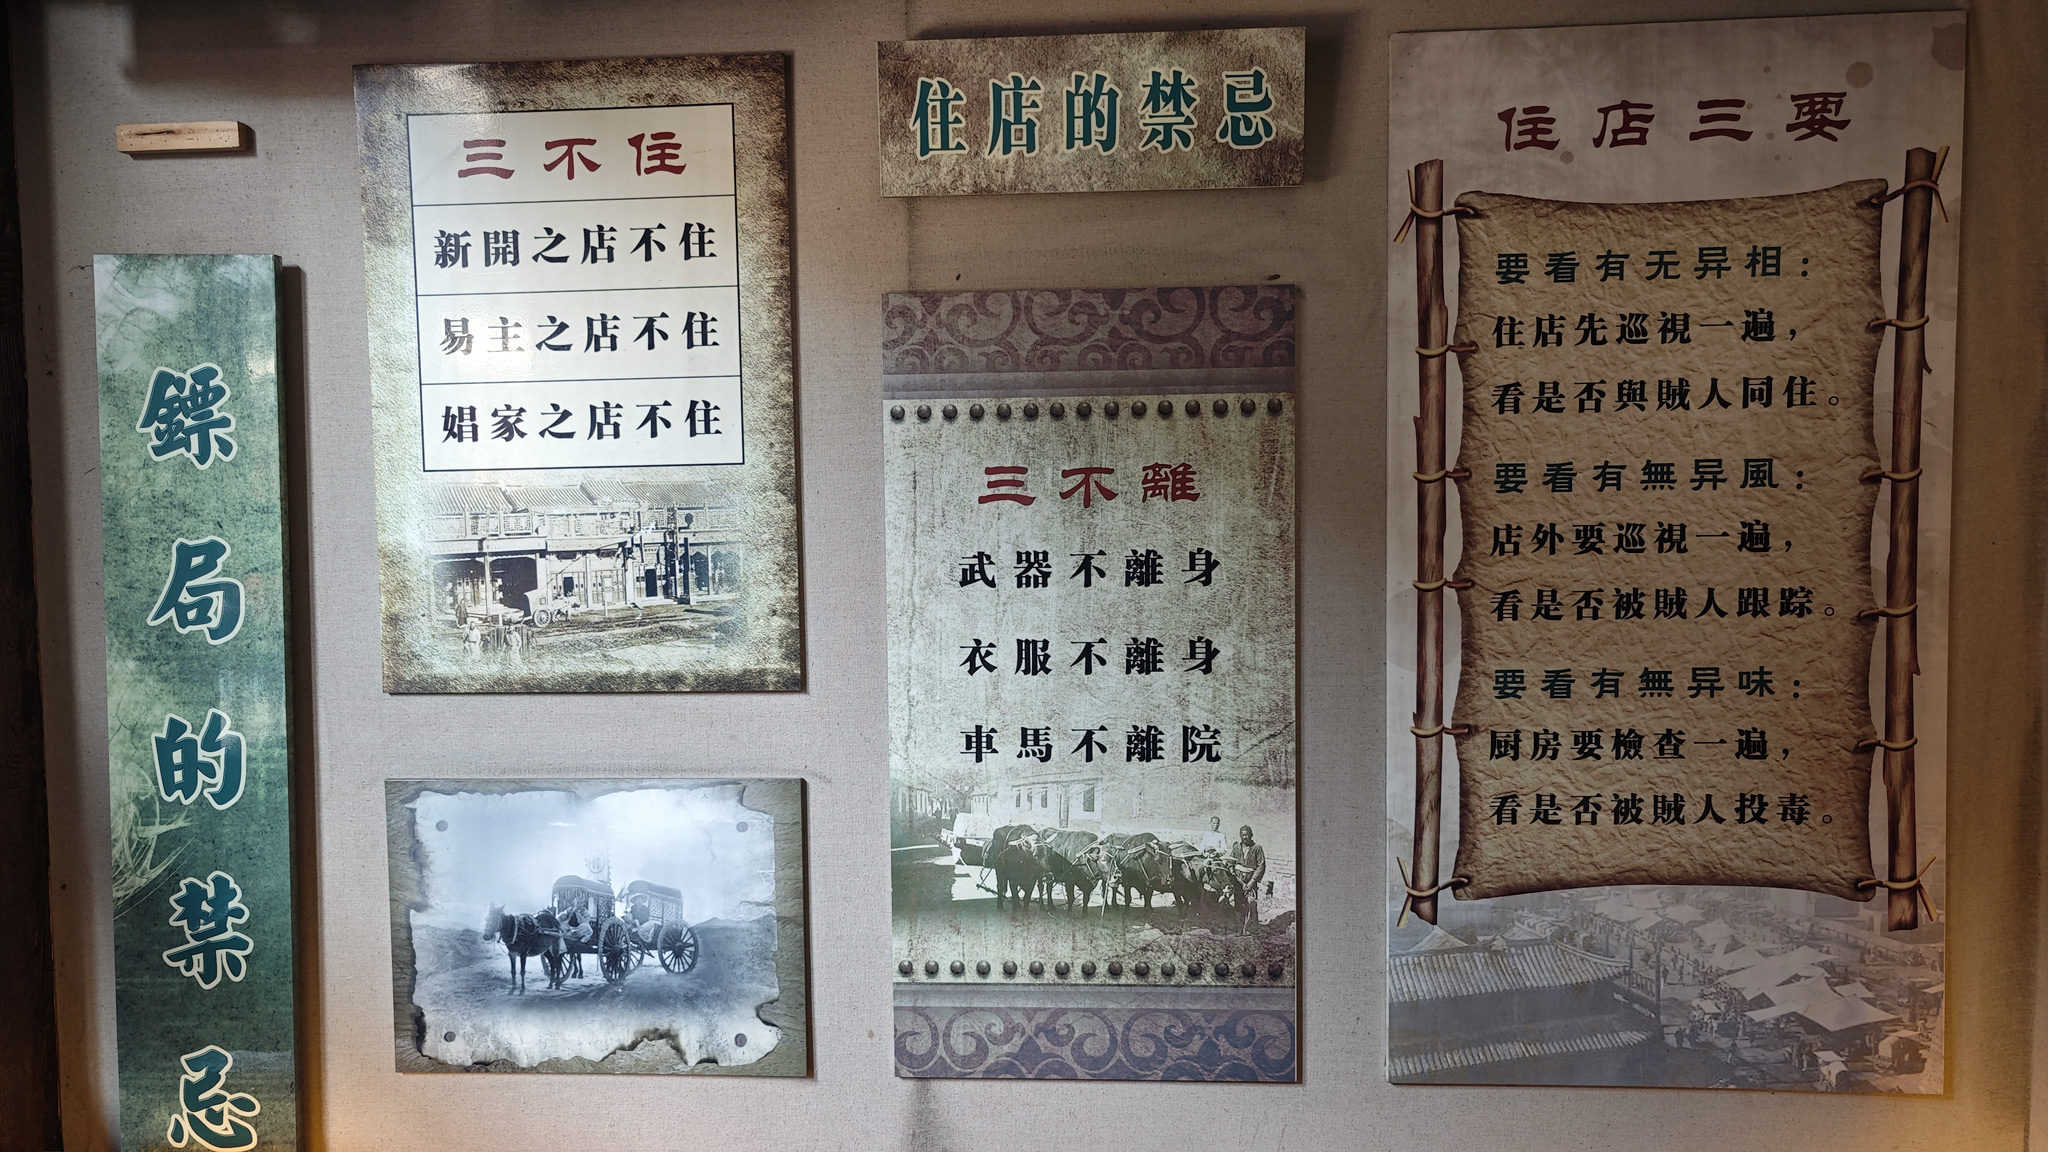 鏢局的禁忌
三不住
新開之店不住
易主之店不住
娼家之店不住
住店的禁忌
三不離
武器不離身
衣服不離身
車馬不離院
住店三要
要看有无异相：
住店先巡視一遍，
看是否與賊人同住。
要看有無异風：
店外要巡視一遍，
看是否被賊人跟踪。
要看有無异味：
厨房要檢查一遍，
看是否被賊人投毒。